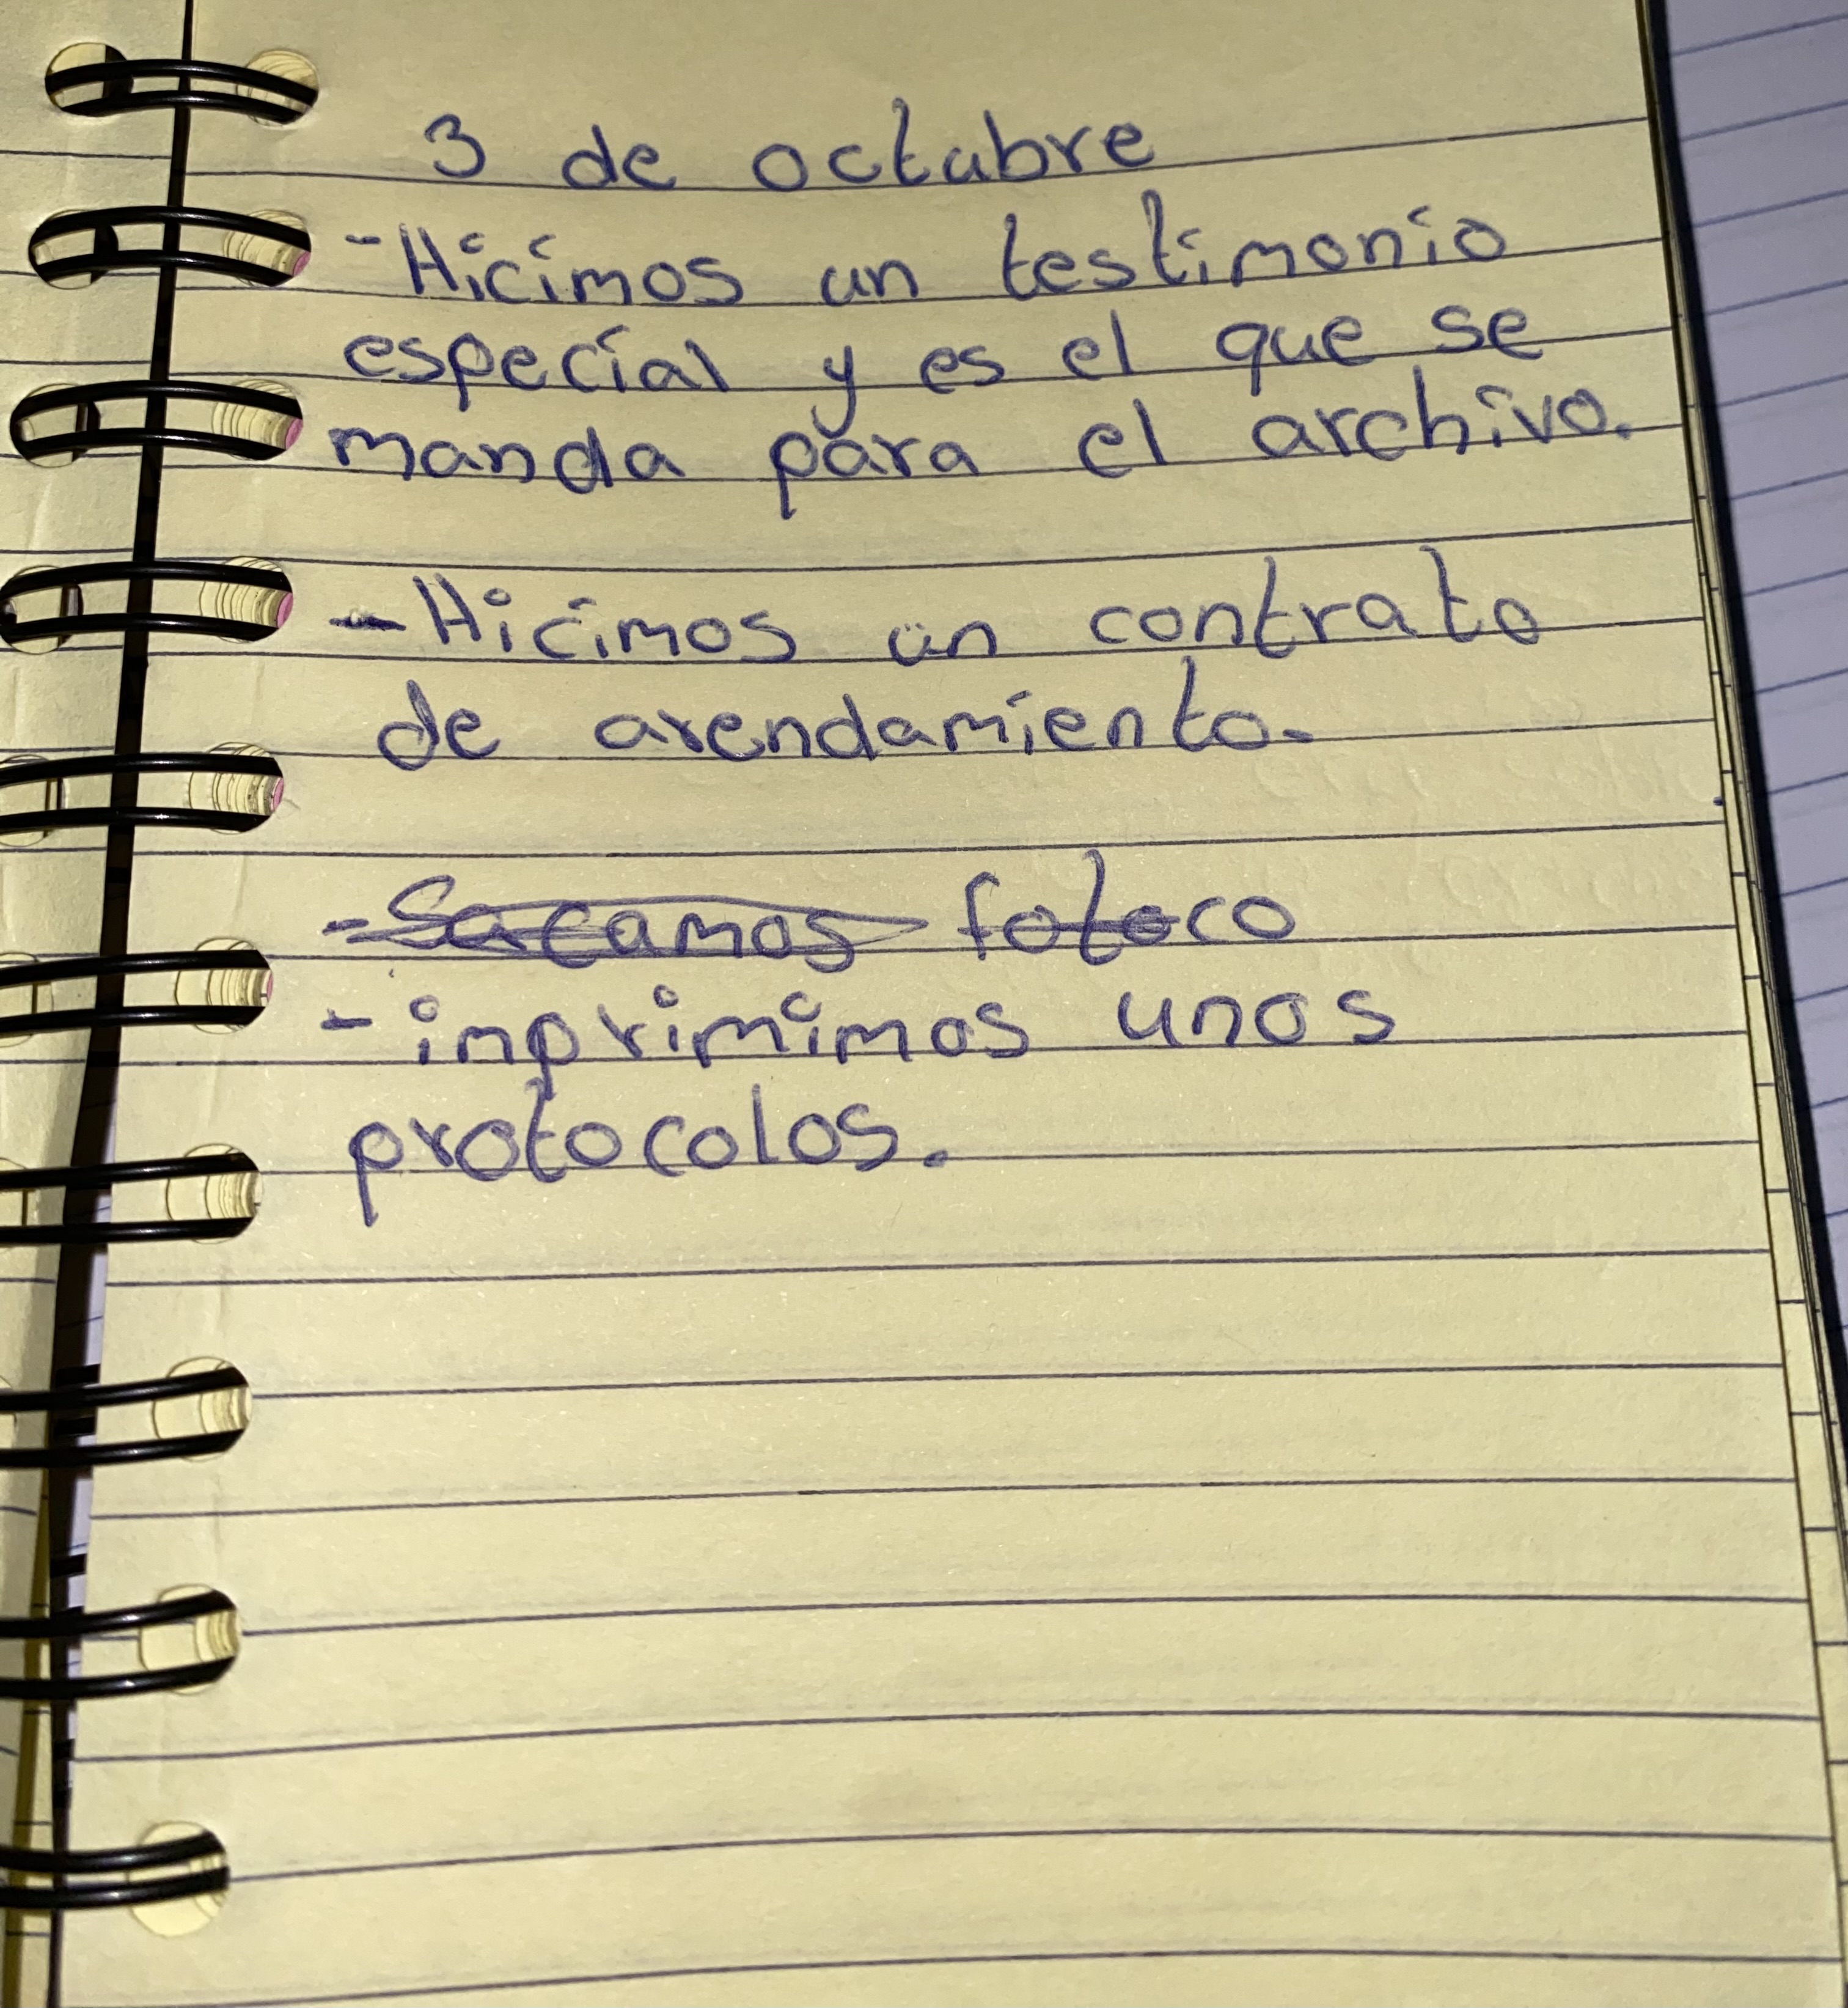 3 de octubre
-Hicimos un testimonio
especial y es el que se
manda para el archivo.
-Hicimos un contrato
de arendamiento.
-Sacamos fotoco
-inprimimos unos
protocolos.